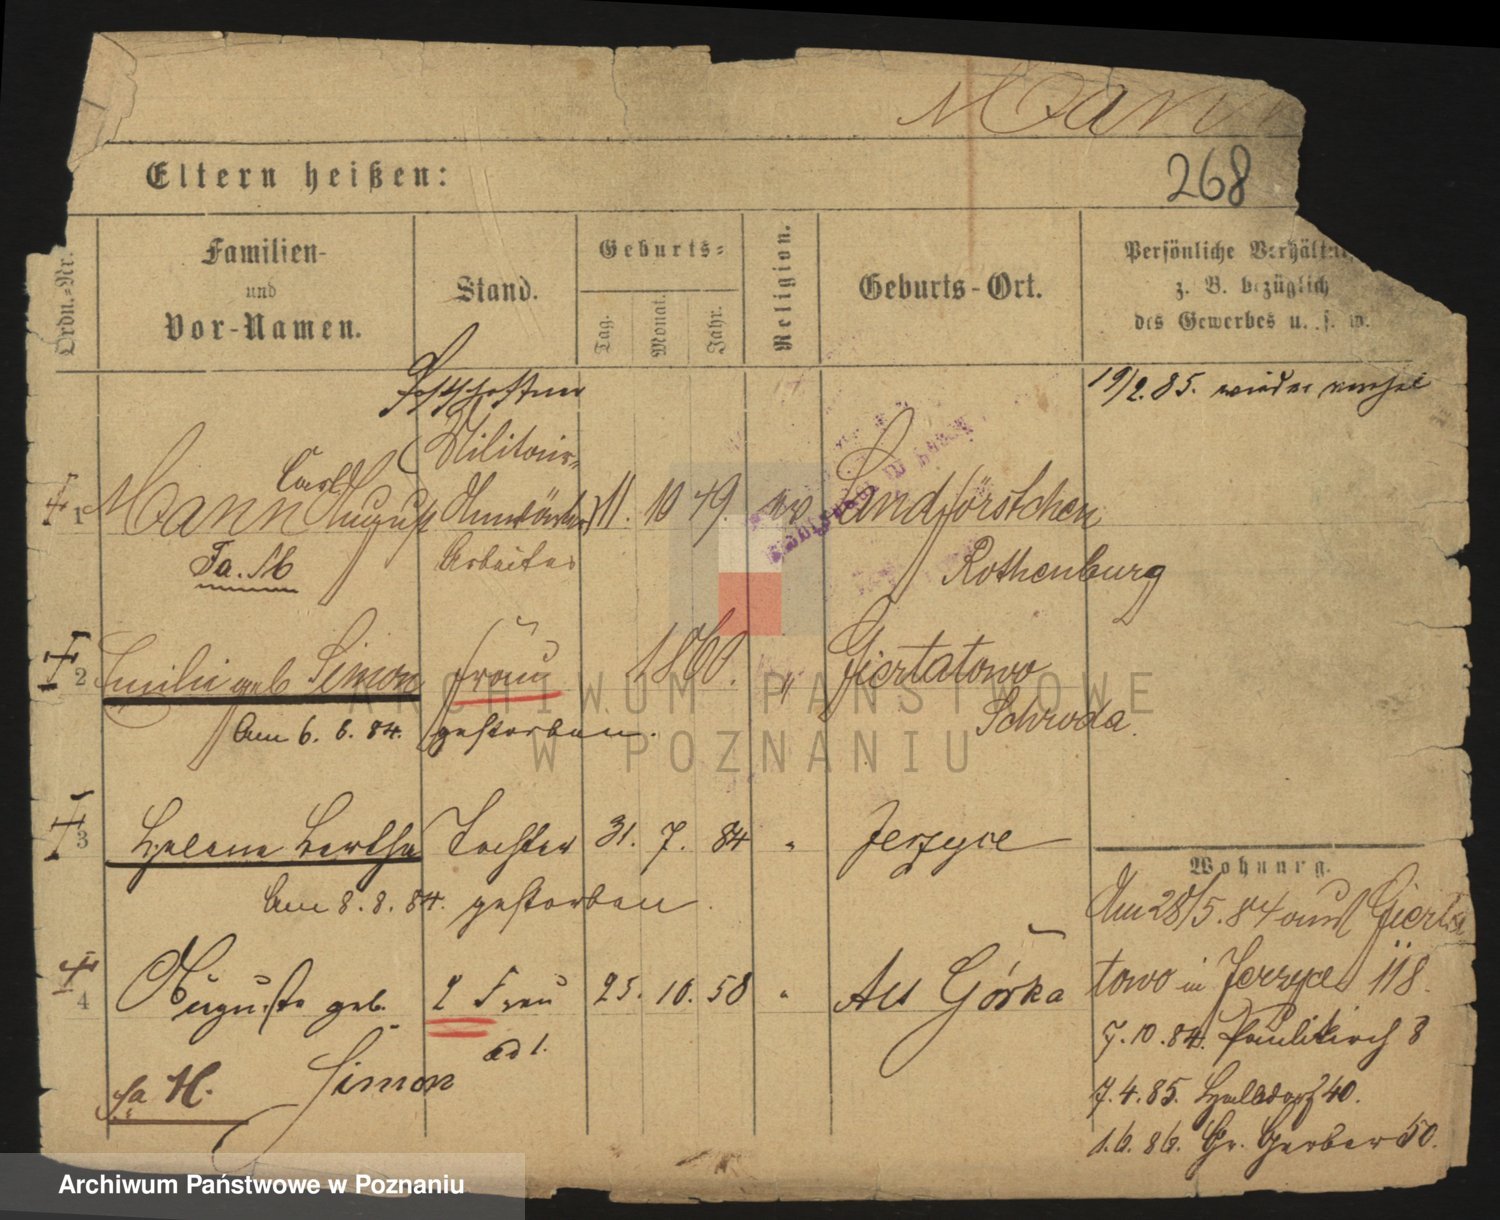 Mann
268
Eltern heißen:
Ordn.-Nr.
Familien-
und
Vor-Namen.
Stand.
Geburts-
Tag.
Monat.
Jahr.
Religion.
Geburts-Ort.
Persönliche Verhältn
z. B. bezüglich
des Gewerbes u. s. w.
19/2. 85. wieder
Militair-
1 Mann Carl August Anwärter 11. 10 49. ev Landförstchen
Fa. 16 Arbeiter Rothenburg
2 Emilie geb Simon Frau 1860. " Giertatowo
Am 6. 8. 84. gestorben. Schroda.
3 Helene Bertha Tochter 31. 7. 84 " Jerzyce
Am 8. 8. 84. gestorben.
Wohnung.
Am 28/5. 84 aus Gierta
towo in Jerzyce 118.
4 Auguste geb. 2 Frau 25. 10. 58 " Alt Górka
ad 1.
Simon
fa H.
7. 10. 84. Paulikirch 8
7. 4. 85. Halbdorf 40.
1. 6. 86. Gr. Gerber 50.
ARCHIWUM PAŃSTWOWE
W POZNANIU
Archiwum Państwowe w Poznaniu